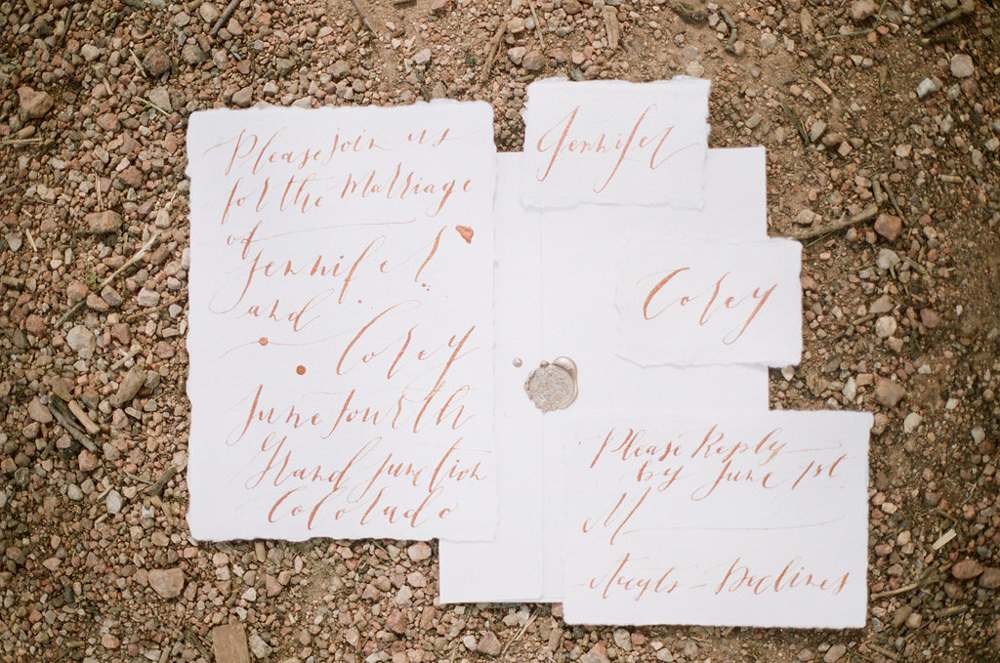 Please join us
for the Marriage
of
Jennifer
and
Corey
June fourth
Grand Junction
Colorado
Jennifer
Corey
Please Reply
by June 1st
M
Accepts - Declines